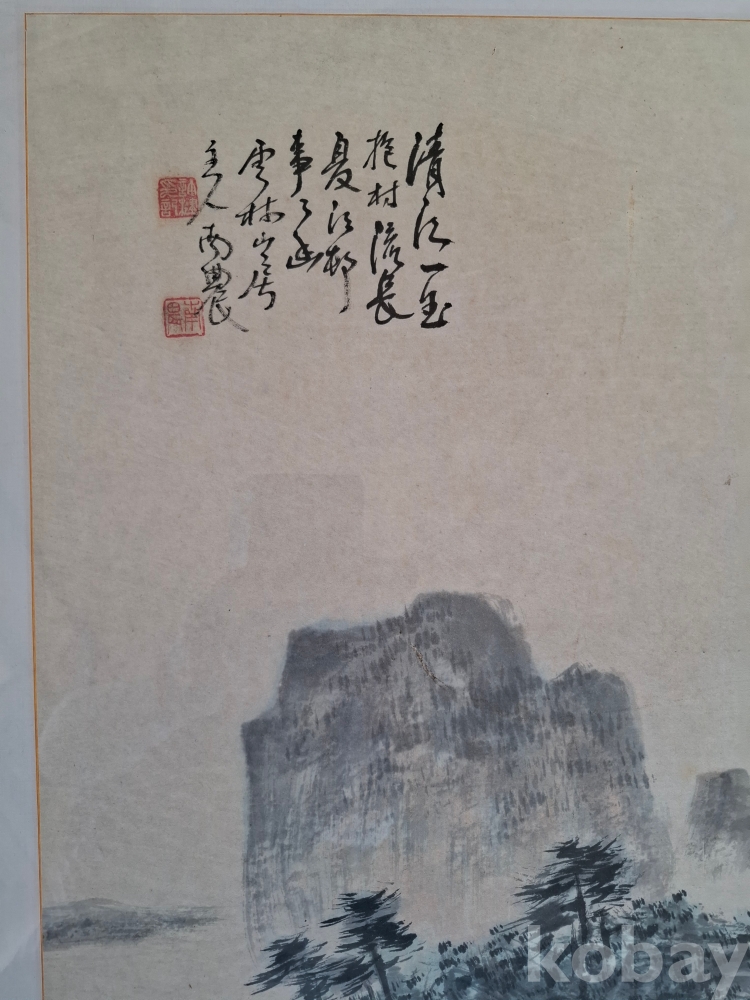 清江一曲
抱村流長
夏江邨
事々幽
雲林山居
主人南農
南農
kobay